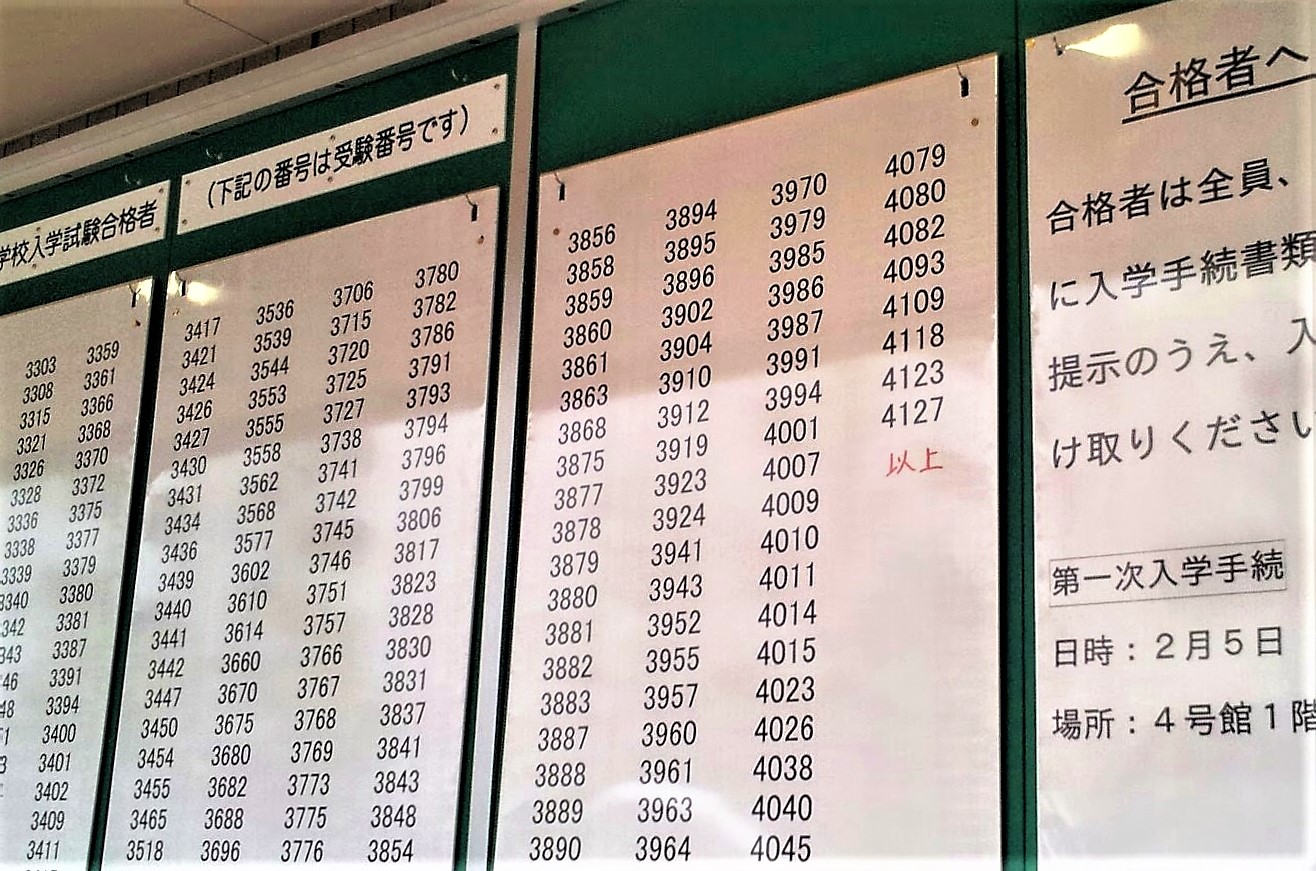 学校入学試験合格者
(下記の番号は受験番号です)
3303
3308
3315
3321
3326
3328
3336
3338
3339
3340
342
343
46
48
3359
3361
3366
3368
3370
3372
3375
3377
3379
3380
3381
3387
3391
3394
3400
3401
3402
3409
3411
3417
3421
3424
3426
3427
3430
3431
3434
3436
3439
3440
3441
3442
3447
3450
3454
3455
3465
3518
3536
3539
3544
3553
3555
3558
3562
3568
3577
3602
3610
3614
3660
3670
3675
3680
3682
3688
3696
3706
3715
3720
3725
3727
3738
3741
3742
3745
3746
3751
3757
3766
3767
3768
3769
3773
3775
3776
3780
3782
3786
3791
3793
3794
3796
3799
3806
3817
3823
3828
3830
3831
3837
3841
3843
3848
3854
3856
3858
3859
3860
3861
3863
3868
3875
3877
3878
3879
3880
3881
3882
3883
3887
3888
3889
3890
3894
3895
3896
3902
3904
3910
3912
3919
3923
3924
3941
3943
3952
3955
3957
3960
3961
3963
3964
3970
3979
3985
3986
3987
3991
3994
4001
4007
4009
4010
4011
4014
4015
4023
4026
4038
4040
4045
4079
4080
4082
4093
4109
4118
4123
4127
以上
合格者へ
合格者は全員、
に入学手続書類
提示のうえ、入
け取りください
第一次入学手続
日時：２月５日
場所：４号館１階